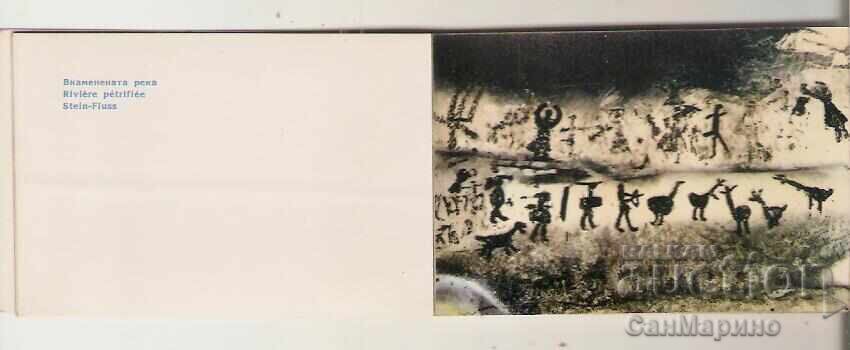 Вкаменената река
Rivière pétrifiée
Stein-Fluss
AUCTION
СанМарино